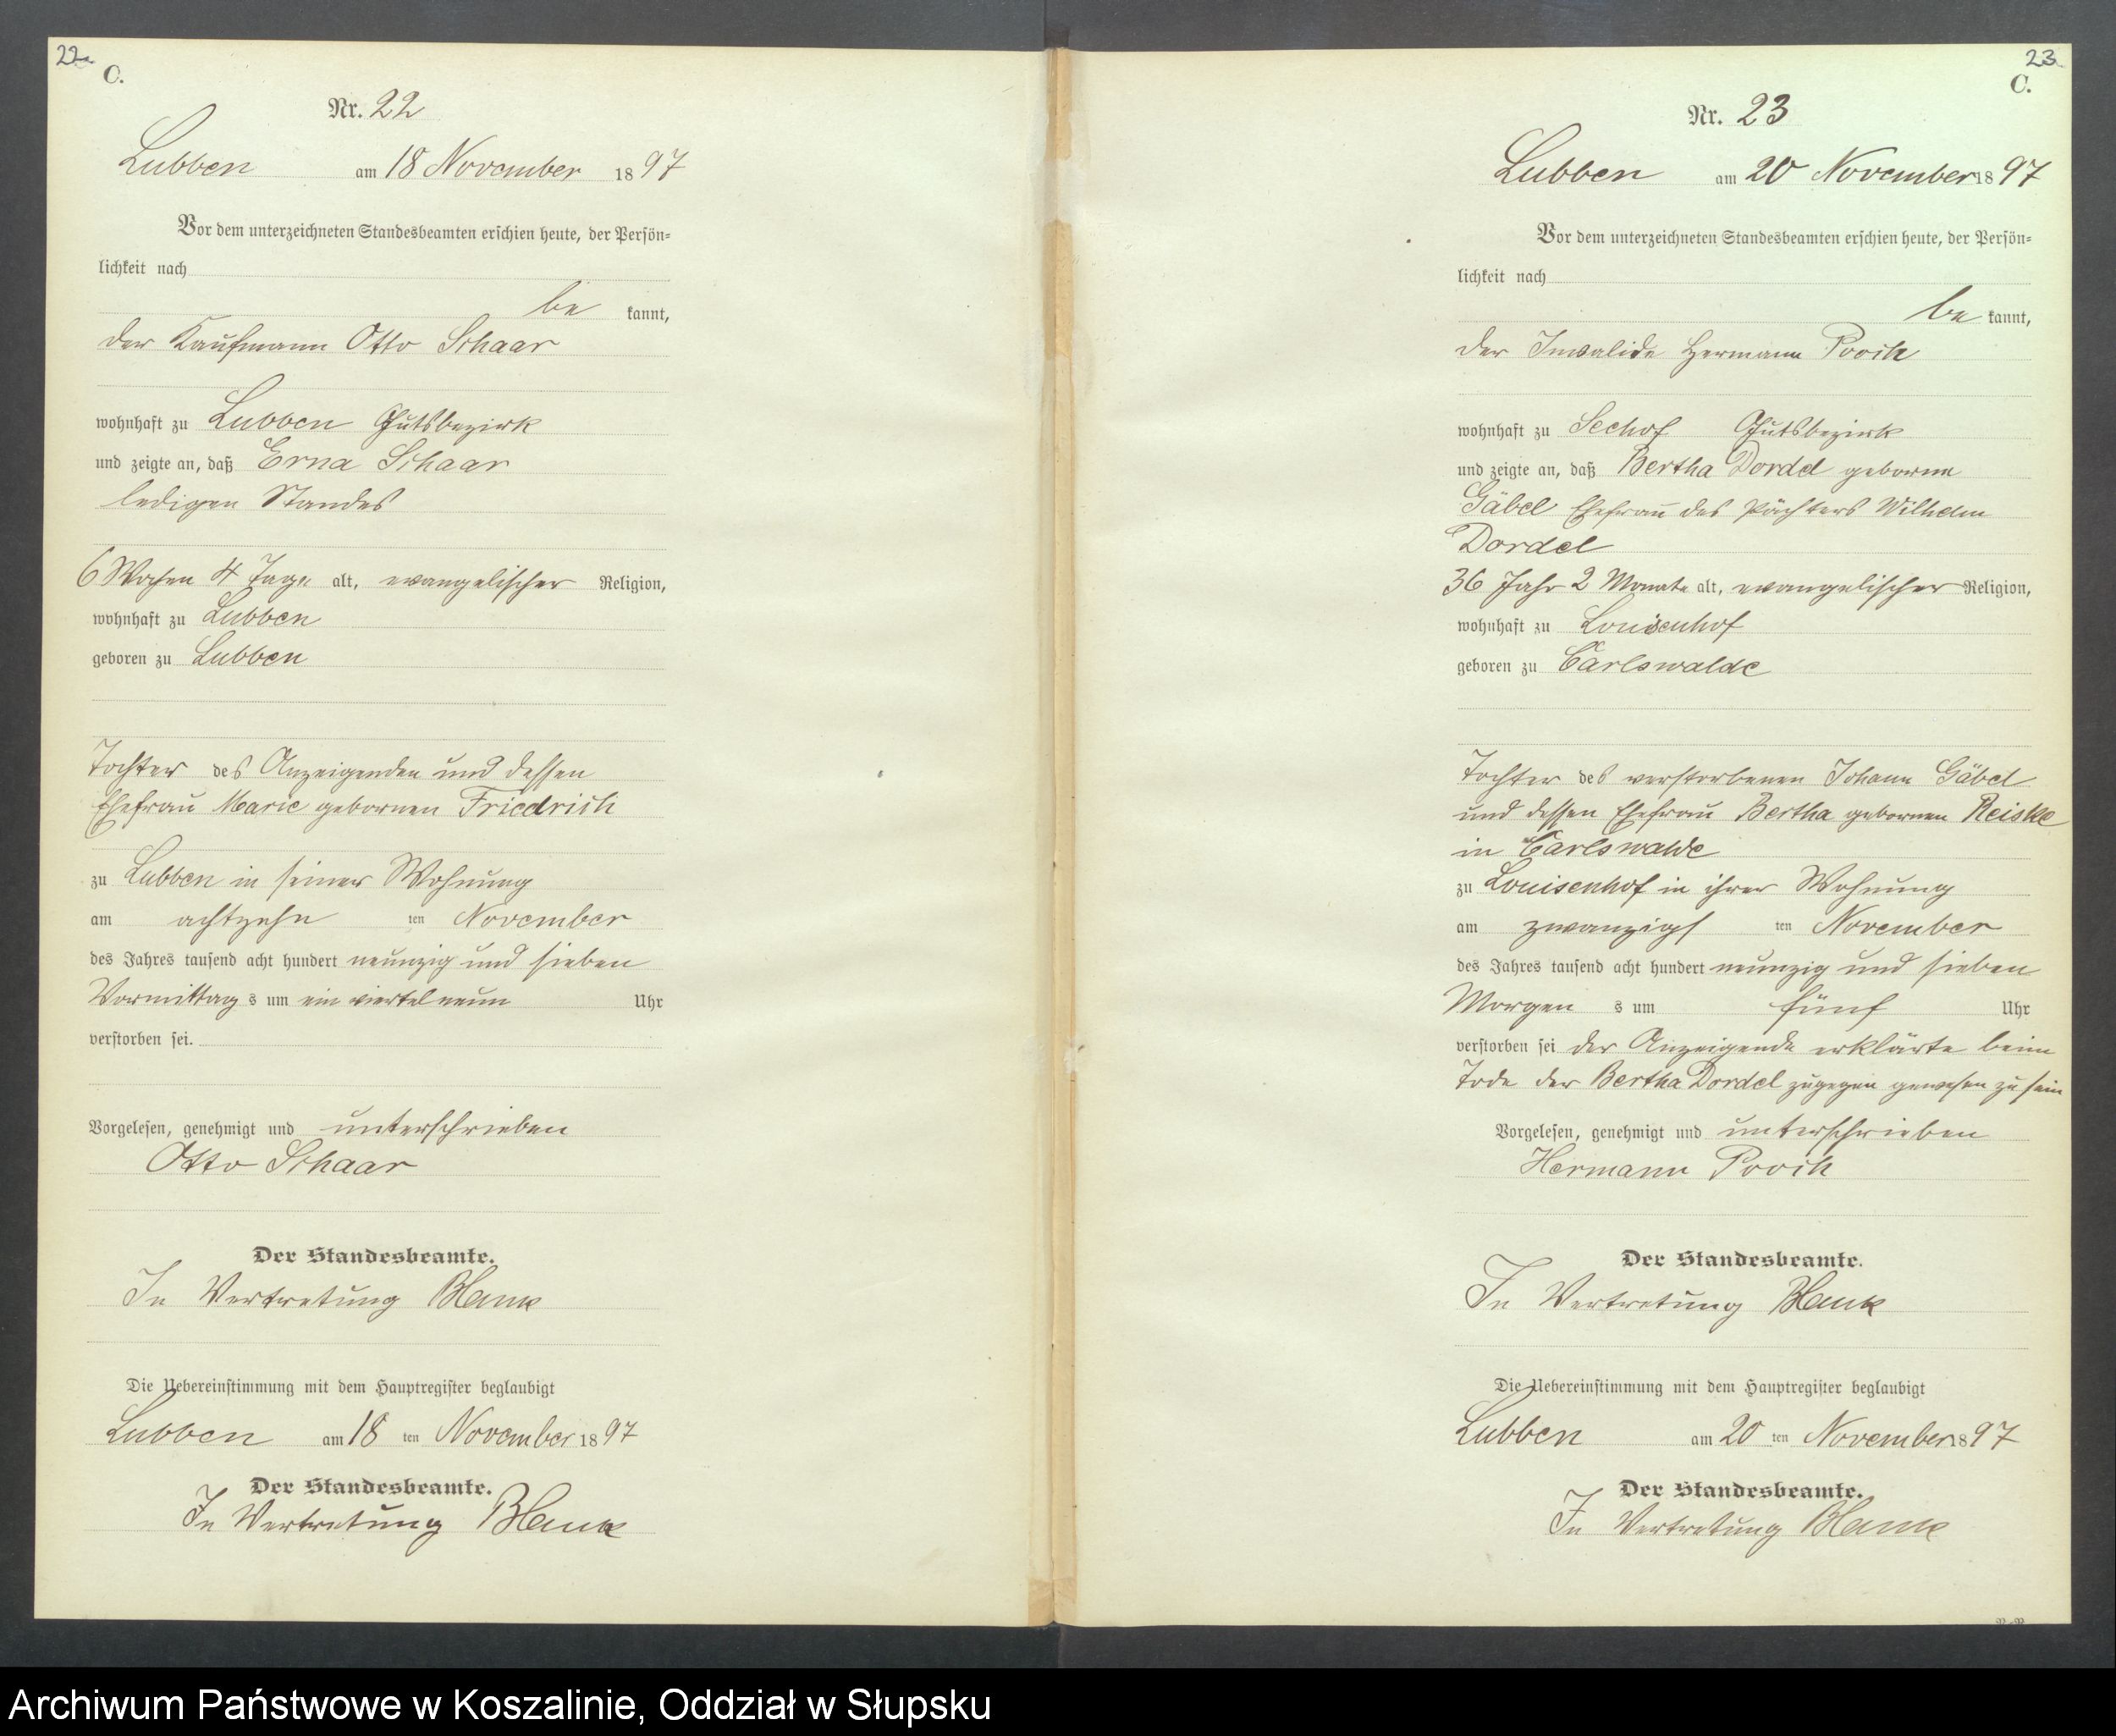 22
C.
Nr. 22
Lubben am 18 November 1897
Vor dem unterzeichneten Standesbeamten erschien heute, der Persön=
lichkeit nach
be kannt,
der Kaufmann Otto Schaar
wohnhaft zu Lubben Gutsbezirk
und zeigte an, daß Erna Schaar
ledigen Standes
6 Wochen 4 Tage alt, evangelischer Religion,
wohnhaft zu Lubben
geboren zu Lubben
Tochter des Anzeigenden und dessen
Ehefrau Marie gebornen Friedrich
zu Lubben in seiner Wohnung
am achtzehn ten November
des Jahres tausend acht hundert neunzig und sieben
Vormittag s um ein viertel neun Uhr
verstorben sei.
Vorgelesen, genehmigt und unterschrieben
Otto Schaar
Der Standesbeamte.
In Vertretung Blank
Die Uebereinstimmung mit dem Hauptregister beglaubigt
Lubben am 18 ten November 1897
Der Standesbeamte.
In Vertretung Blank
23
C.
Nr. 23
Lubben am 20 November 1897
Vor dem unterzeichneten Standesbeamten erschien heute, der Persön=
lichkeit nach
be kannt,
der Invalide Hermann Pooch
wohnhaft zu Seehof Gutsbezirk
und zeigte an, daß Bertha Dordel geborne
Gäbel Ehefrau des Pächters Wilhelm
Dordel
36 Jahr 2 Monate alt, evangelischer Religion,
wohnhaft zu Louisenhof
geboren zu Carlswalde
Tochter des verstorbenen Johann Gäbel
und dessen Ehefrau Bertha gebornen Reiske
in Carlswalde
zu Louisenhof in ihrer Wohnung
am zwanzigs ten November
des Jahres tausend acht hundert neunzig und sieben
Morgen s um fünf Uhr
verstorben sei der Anzeigende erklärte beim
Tode der Bertha Dordel zugegen gewesen zu sein
Vorgelesen, genehmigt und unterschrieben
Hermann Pooch
Der Standesbeamte.
In Vertretung Blank
Die Uebereinstimmung mit dem Hauptregister beglaubigt
Lubben am 20 ten November 1897
Der Standesbeamte.
In Vertretung Blank
Archiwum Państwowe w Koszalinie, Oddział w Słupsku